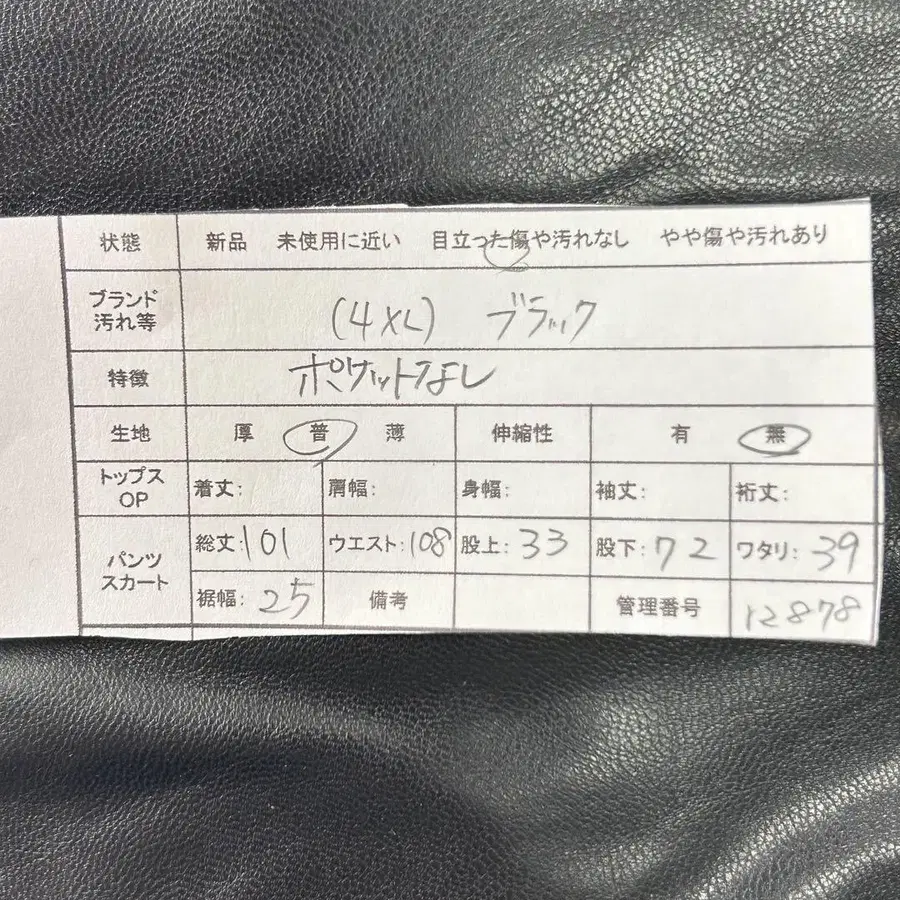 状態 新品 未使用に近い 目立った傷や汚れなし やや傷や汚れあり
ブランド
汚れ等 (4XL) ブラック
特徴 ポケットなし
生地 厚 普 薄 伸縮性 有 無
トップス
OP 着丈: 肩幅: 身幅: 袖丈: 裄丈:
パンツ
スカート 総丈:101 ウエスト:108 股上:33 股下:72 ワタリ:39
裾幅:25 備考 管理番号 12878